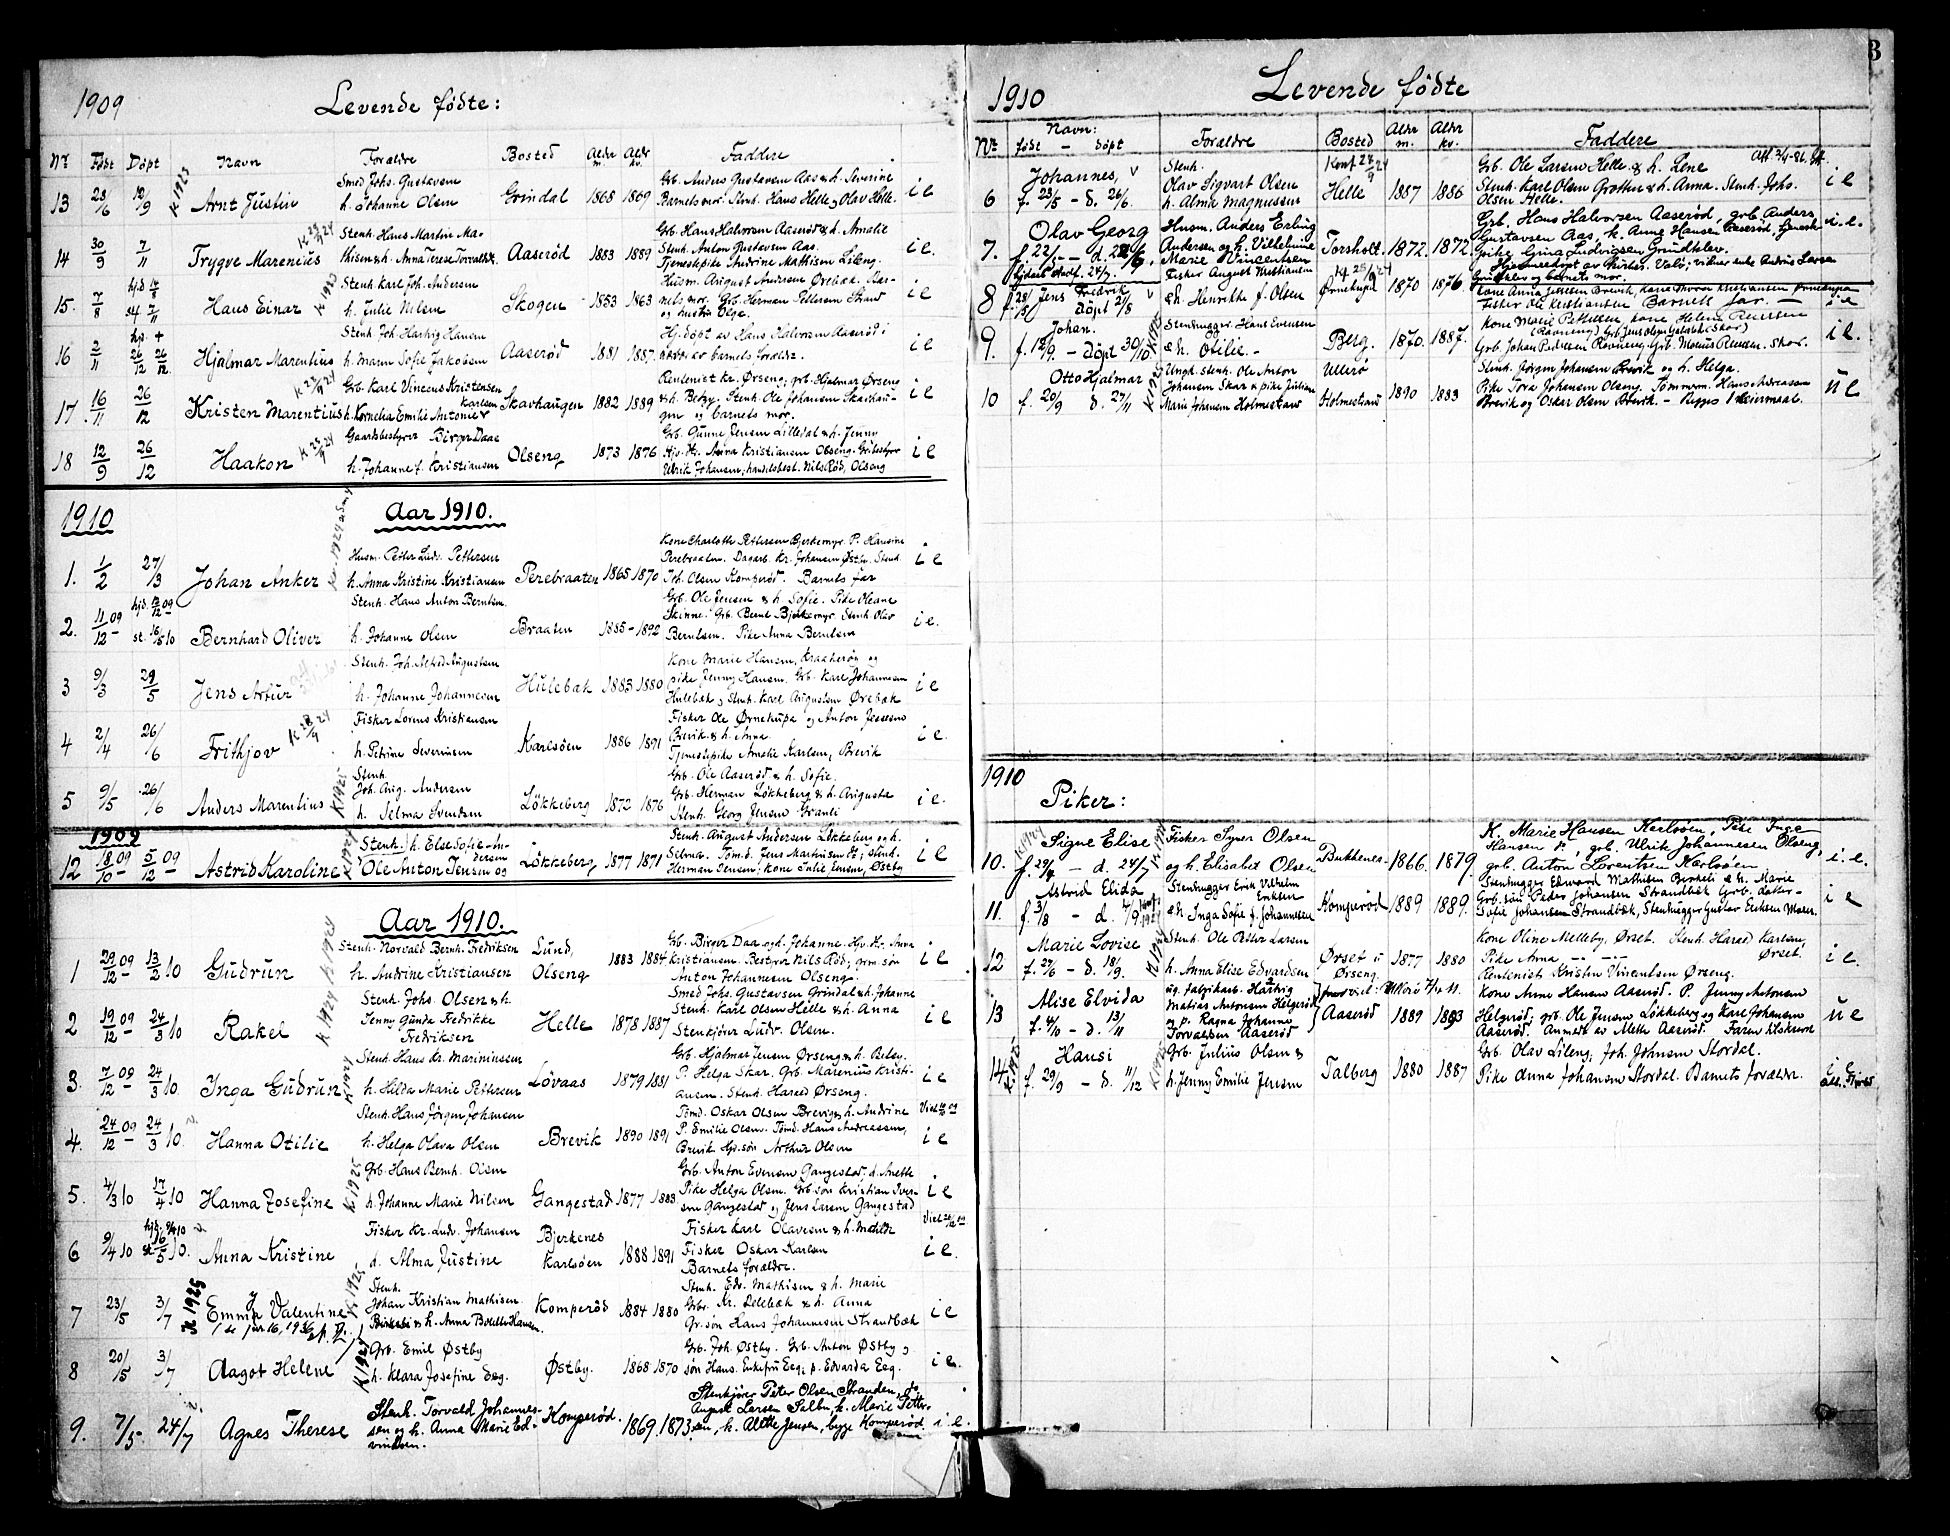 1909 Levende födte:
Nr Födt Döpt Navn Forældre Bosted Alder m. Aldr kv. Faddere
13 28/6 12/9 K 1923 Arnt Justin Smed Johs. Gustavsen
h. Johanne Olsen Grindal 1868 1869 Grb. Anders Gustavsen Aas & h. Severine
Barnets mor. Stenh. Hans Helle og Olav Helle. i e
14 30/9 7/11 Trygve Marenius Stenh. Hans Martin Ma-
thisen & h. Anna Terese Torvalds. Aaseröd 1883 1889 Grb. Hans Halvorsen Aaseröd & h. Amalie
Stenh. Anton Gustavsen Aas.
Tjenestepike Andrine Mathisen Lileng. i e.
15. 7/8 hjd 14/8 st. 7/11 Hans Einar K 1923 Stenh. Karl Joh. Andersen
h. Julie Nilsen Skogen 1853 1863 Husm. August Andersen Örebæk. Bar-
nets mor. Grb. Herman Pettersen Skare
og hustru Olga. i e
16 2/11 hjp. + 26/12 26/12 Hjalmar Marentius Stenh. Joh. Hartvig Hansen
h. Maren Sofie Jakobsen Aaseröd 1881 1887. Hj. döpt av Hans Halvorsen Aaseröd i
barnets forældr. i e
17. 16/11 26/12 Kristen Marentius Grb. Karl Vincens Kristensen
h. Kornelia Emilie Antonie Karlsen Skavhaugen 1882 1889 Rentenist Kr. Örseng; grb. Hjalmar Örseng
& h. Betzy. Stenh. Ole Johansen Skavhau-
gen og barnets mor. i e
18 12/9 26/12 Haakon Gaardsbestyrer Birger Daae
h. Johanne f. Kristiansen Olseng 1873 1876 Grb. Gunne Jensen Lilledal & h. Jenny
Hjv. Fr. Anna Kristiansen Olseng. Grdbestyrer
Ulrik Johansen; handelsbest. Nils Röd, Olseng i e
1910 Aar 1910.
1. 1/2 27/3 Johan Anker Husm. Petter Ludv. Pettersen
h. Anna Kristine Kristiansen Perebraaten 1865 1870 Kone Charlotte Pettersen Bjerkemyr. P. Hansine
Perebraaten. Dagarb. Kr. Johansen Östby. Stenh.
Joh. Olsen Komperöd. Barnets far i e
2. 11/12 09 hjd. 12/12 09 st. 16/5 10 Bernhard Oliver Stenh. Hans Anton Berntsen.
h. Johanne Olsen Braaten 1885 - 1892 Grb. Ole Jensen & h. Sofie. Pike Oleane
Skinne. Grb. Bernt Bjerkemyr. Stenh Olav
Berntsen. Pike Anna Berntsen i e.
3 9/3 29/5 Jens Artur Stenh. Joh. Alfred Augustsen
h. Johanne Johannesen Hulebak 1883 1880 Kone Marie Hansen, Kraakerøy og
pike Jenny Hansen. Grb. Karl Johannesen
Hulebæk og Stenh. Karl Augustsen Örebæk i e
4 2/4 26/6 Frithjov K 28/9 24 Fisker Lorens Kristiansen
h. Petrine Severinsen Karlsöen 1886 1891 Fisker Ole Ørnekupa og Anton Jensen
Brevik & h. Anna.
Tjenestepike Amalie Karlsen, Brevik i e.
5 9/5 26/6 Anders Marentius K 1925 Stenh.
Joh. Aug. Andersen
h. Selma Svendsen Lökkeberg 1872 1876 Grb. Ole Aaseröd & h. Sofie.
Grb. Herman Lökkeberg & h. Augusta
Stenh. Georg Jensen Graneli i e.
1909
12 18/10 09 5/12 09 Astrid Karoline K 1924 Stenh. h. Else Sofie An-
dersen
Ole Anton Jensen og Lökkeberg, 1877 1871 Stenh. August Andersen Lökkeberg og h.
Selma. Tömd. Jens Martinsen; Stenh.
Herman Jensen; kone Julie Jensen, Östby i e
Aar 1910.
1 29/12 09 13/2 10 Gudrun K 1924 Stenh. Norvald Bernh. Fredriksen
h. Andrine Kristiansen Lund, Olseng 1883 1884 Grb. Birger Daa og h. Johanne. Hjv. Fr. Anna
Kristiansen. Bestyrer Nils Röd; grm. sön
Anton Johannesen Olseng. i e
2 19/12 09 24/3 10 Rakel K 1924 Stenh. Johs. Olsen & h.
Jenny Gunda Fredrikke
Fredriksen Helle 1878 1887 Smed Johs. Gustavsen Grindal & h. Johanne
Stenh. Karl Olsen Helle & h. Anna
Stenkjörer Ludv. Olsen. i e
3. 7/12 09 24/3 10. Inga Gudrun K 1924 Stenh. Hans Kr. Mariniussen
h. Helda Marie Pettersen Lövaas 1879 1881 Grb. Hjalmar Jensen Örseng & h. Betsy.
P. Helga Skar. Grb. Marenius Kristi-
ansen. Stenh. Harald Örseng. i e
4. 24/12 09 24/3 10. Hanna Otilie Stenh. Hans Jörgen Johansen
h. Helga Olava Olsen Brevik 1890 1891 Tömd. Oskar Olsen Brevig & h. Andrine
P. Emilie Olsen. Tömd. Hans Andreassen,
Brevik Hjv. sön Arthur Olsen i e
5. 4/3 10 17/4 10 Hanna Josefine K 1925 Grb. Hans Bernh. Olsen
h. Johanne Marie Nilsen Gangestad 1877 1883 Grb. Anton Evensen Gangestad, d. Anette
Pike Helga Olsen. Grb. sön Kristian Iver-
sen Gangestad og Jens Larsen Gangestad i e
6 9/4 10 hjd. 9/4 10 st. 16/5 10. Anna Kristine Fisker Kr. Ludv. Johansen
d. Alma Justine Bjerkenes Karlsöen 1888 1891 Fisker Karl Olavesen & h. Matilde
Fisker Oskar Karlsen
Barnets forældre. i e.
7 23/5 3/7 K 1925 Emma Valentine K 1925 Stenh.
Johan Kristian Mathisen
Birkeli & h. Anna Bolette Hansen. Komperöd 1884 1880 Stenh. Edv. Mathisen & h. Marie
Grbr. Kr. Lelebæk & h. Anna
Gr. sön Hans Johannesen Strandbæk i e
8 20/5 3/7 Aagot Helene K 1924 Grb. Emil Östby
h. Klara Josefine Eeg. Östby. 1868 1870 Grb. Joh. Östby. Grb. Anton Östby og
sön Hans. Enkefru Eeg; p. Edvarda Eeg. i e.
9. 7/5 24/7 Agnes Therese Stenh. Torvald Johannes-
sen og h. Anna Marie Ed-
vindsen. Komperöd. 1869. 1873. Stenkjörer Peter Olsen Stranden, do
August Larsen Salbu, k. Marie Petter-
sen, k. Alette Jensen, begge Komperöd i e.
1910 Levende födte 3
Nr. Navn: födt - döpt Forældre Bosted Aldr m. Aldr kv. Faddere
6 Johannes,
f. 22/5 - d. 26/6. Stenh.
Olav Sigvart Olsen
h. Alma Magnussen Konf. 28/9 24 Helle 1887 1886 Grb. Ole Larsen Helle & h. Lene
Stenh. Karl Olsen Grotten & h. Anna. Stenh. Johs.
Olsen Helle. i e
7. Olav Georg
f. 22/5 - d. 26/6. Husm. Anders Erling
Andersen og h. Vilhelmine
Marie Vincentsen Torsholt. 1872. 1872. Grb. Hans Halvorsen Aaseröd, grb. Anders
Gustavsen Aas, k. Anne Hansen Aaseröd, Tjeneste
pike Gina Ludvigsen Grundklev. i. e.
8 f. 28/5 Jens Fredrik döpt 21/8 Fisker August Kristiansen
& h. Henritte f. Olsen Ørnekupa 1870 1876. Kone Anna Jensen Brevik, kone Thora Kristiansen Ørnekupa
Fisker Ole Kristiansen Barnets far. i e
9. Johan.
f. 12/9. - Döpt 30/10 K 1925 Stenhugger Hans Evensen
og
h. Otilie. - Berg. 1870. 1887. Kone Marie Pettersen, kone Helene Reiersen
(Rönning) Grb. Jens Olsen Galabek (Skar)
Grb. Johan Pedersen Rönning. Grb. Monius Reiersen. Skar. i e.
10 Otto Hjalmar
f. 20/9 d. 27/11 K 1925 Ungd. stenh. Ole Anton
Johansen Skar & pike Juliane
Marie Johansen Holmestrand Ullerö Holmestrand 1890 1883 Stenh. Jörgen Johansen Brevik og h. Helga.
Pike Tora Johansen Olseng. Tömmerm. Hans Andreassen
Brevik og Oskar Olsen Brevik. - u e
1910
Piker:
10. Signe Elise
f. 29/4 - d. 24/7 Fisker Syver Olsen
og h. Elisabet Olsen Bukkenes. 1866. 1879. K. Marie Hansen Kerlsöen, Pike Inga
Hansen d., grb. Ulrik Johannesen Olseng,
grb. Anton Lorentsen Karlsöen i. e.
11. Astrid Elida
f. 3/8 - d. 4/9 Stenhugger Erik Vilhelm
Eriksen
& h. Inga Sofie f. Johannesen Komperöd 1889 1889. Stenhugger Edward Mathisen Berkeli & h. Marie
Grb. sön Peder Johansen Strandbæk Grb. datter
Sofie Johansen Strandbæk, Stenhugger Gustav Eriksen i e
12 Marie Lovise
f. 27/6 - d. 18/9. K 1924 Stenh. Ole Petter Larsen
h. Anna Elise Edvardsen Örset i Örseng. 1877 1880 Kone Oline Melleby, Örset. Stenh. Harald Karlsen,
Pike Anna Örset.
Rentenist Kristen Vincentsen Örseng. i e.
13 Alise Elvida
f. 4/10 - d. 13/11 ug. fabrikarb. Hartvig
Matias Antonsen Helgeröd
og p. Ragna Johanne
Torvaldsen Aaseröd Aaseröd 1889 1893 Kone Anne Hansen Aaseröd. P. Jenny Antonsen
Helgröd, grb. Ole Jensen Lökkeberg og Karl Johansen
Aaseröd. Anmeldt av Mette Aaseröd. Faren tilskrevet u e
14 K. 1925 Hansi
f. 29/9 - d. 11/12 K 1925 Grb. Julius Olsen &
h. Jenny Emilie Jensen Talberg 1880 1887 Grb. Olav Lileng; Joh. Johnsen Stordal.
Pike Anna Johansen Stordal. Barnets forældre. i e